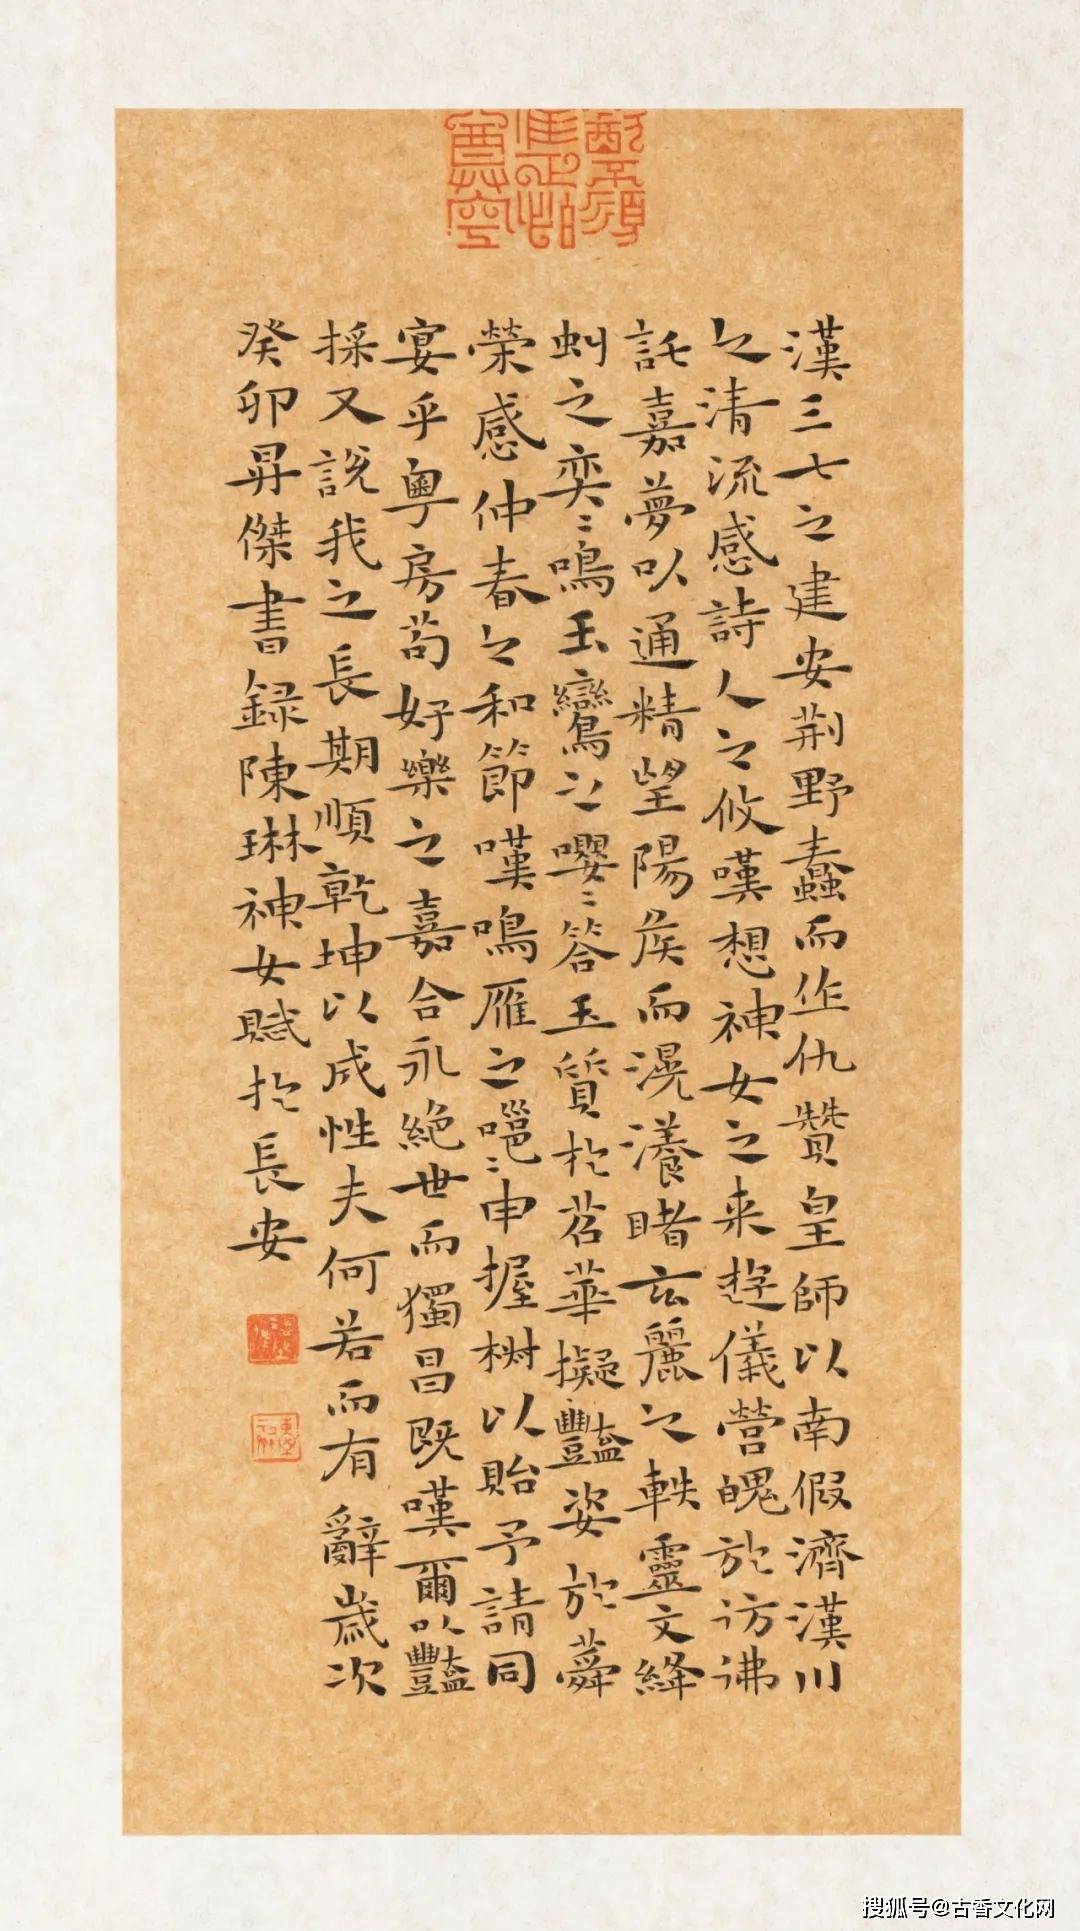 漢三七之建安荆野蠢而作仇贊皇師以南假濟漢川
之清流感詩人之攸嘆想神女之来遊儀營魄於访彿
託嘉夢以通精望陽侯而滉瀁睹玄麗之軼靈文絳
虬之奕〻鳴玉鸞之嚶〻答玉質於苕華擬豔姿於蕣
榮感仲春之和節嘆鳴雁之嗈〻申握樹以貽予請同
宴乎粵房苟好樂之嘉合永絶世而獨昌既嘆爾以豔
採又説我之長期順乾坤以成性夫何若而有辭歳次
癸卯昇傑書録陳琳神女賦扵長安
搜狐号@古香文化网